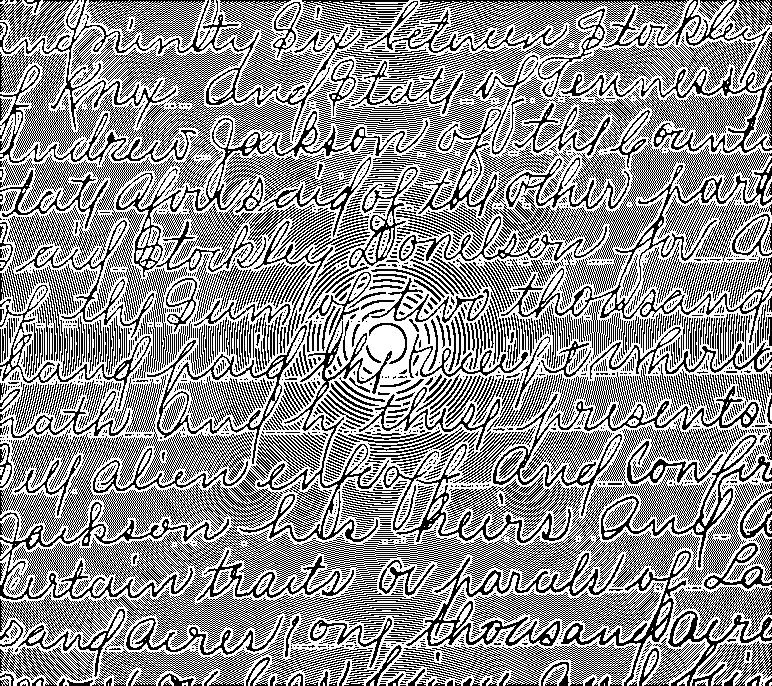 and Ninty Six between Stockley
of Knox And State of Tennessee
Andrew Jackson of the County
State Aforesaid of the other part
Said Stockley Donelson for A
of the Sum of two thousand
hand paid the receipt whereo
hath And by these presents
Sell alien enfeoff And Confir
Jackson his heirs And A
Certain tracts or parcels of La
sand acres one thousand acre